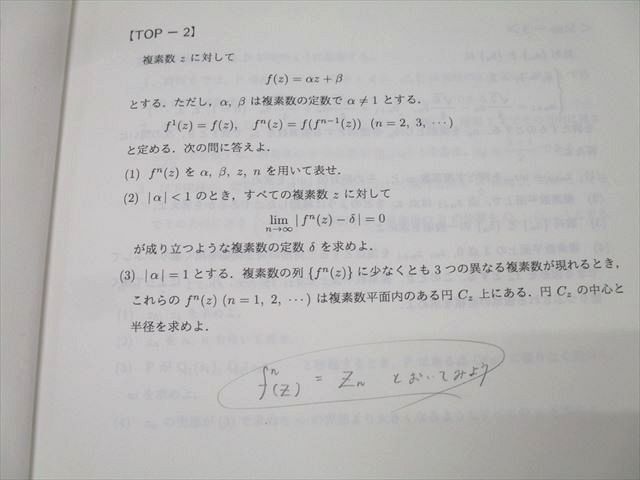 【TOP － 2】
複素数 z に対して
f(z) = αz + β
とする．ただし，α, β は複素数の定数で α ≠ 1 とする．
f¹(z) = f(z), fⁿ(z) = f(fⁿ⁻¹(z)) (n = 2, 3, ⋯)
と定める．次の問に答えよ．
(1) fⁿ(z) を α, β, z, n を用いて表せ．
(2) |α| < 1 のとき，すべての複素数 z に対して
lim n→∞ |fⁿ(z) − δ| = 0
が成り立つような複素数の定数 δ を求めよ．
(3) |α| = 1 とする．複素数の列 {fⁿ(z)} に少なくとも 3 つの異なる複素数が現れるとき，
これらの fⁿ(z) (n = 1, 2, ⋯) は複素数平面内のある円 C_z 上にある．円 C_z の中心と
半径を求めよ．
fⁿ(z) = Zn とおいてみよう